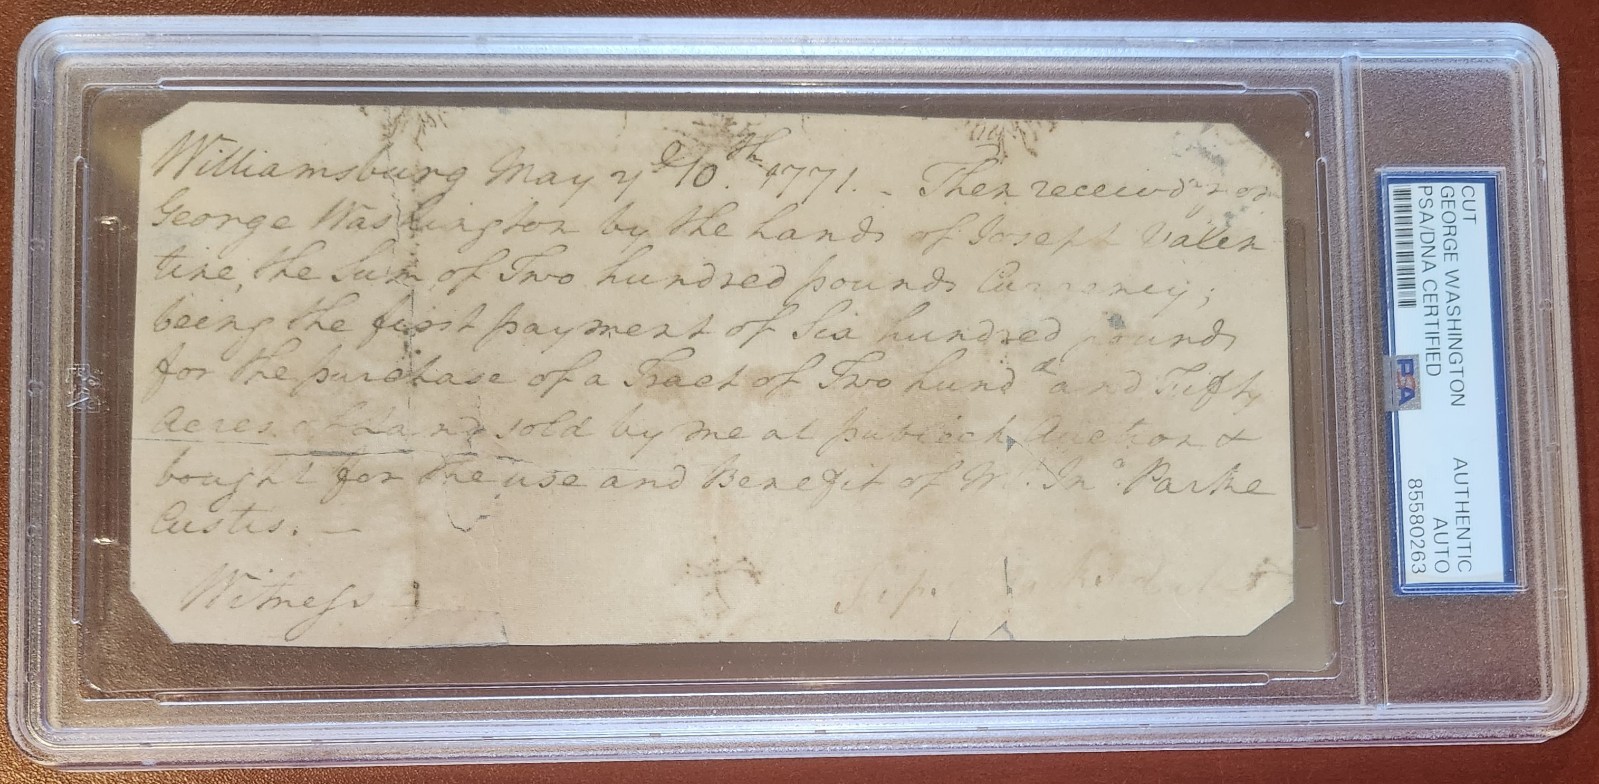 Williamsburg May yᵉ 10.ᵗʰ 1771. - Then receiv'd
George Washington by the hands of Joseph Valen
tine, the Sum of Two hundred pounds Currency;
being the first payment of Six hundred pounds
for the purchase of a Tract of Two hundᵈ and Fifty
Acres of Land sold by me at publick Auction &
bought for the use and Benefit of Mʳ. Jnᵒ. Parke
Custis. —
Witness
CUT
GEORGE WASHINGTON
PSA/DNA CERTIFIED
AUTHENTIC
AUTO
85580263